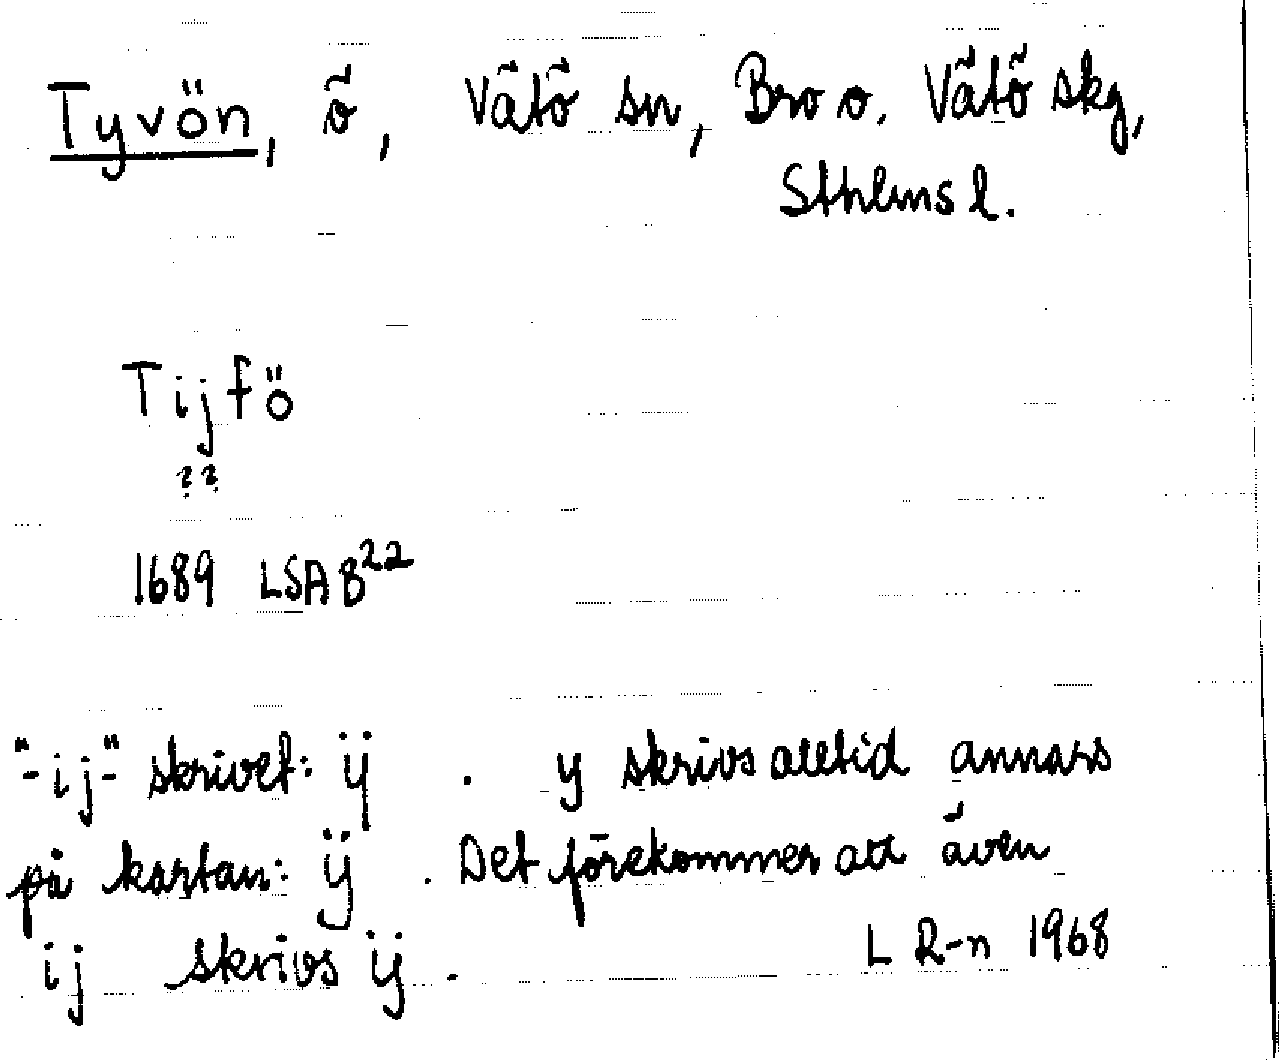 Tyvön, ö, Vätö sn, Bro o. Vätö skg,
Sthlms l.
Tijfö
??
1689 LSA B22
"-ij-" skrivet: ij . y skrivs alltid annars
på kartan: ÿ . Det förekommer att även
ij skrivs ij .
L R-n 1968